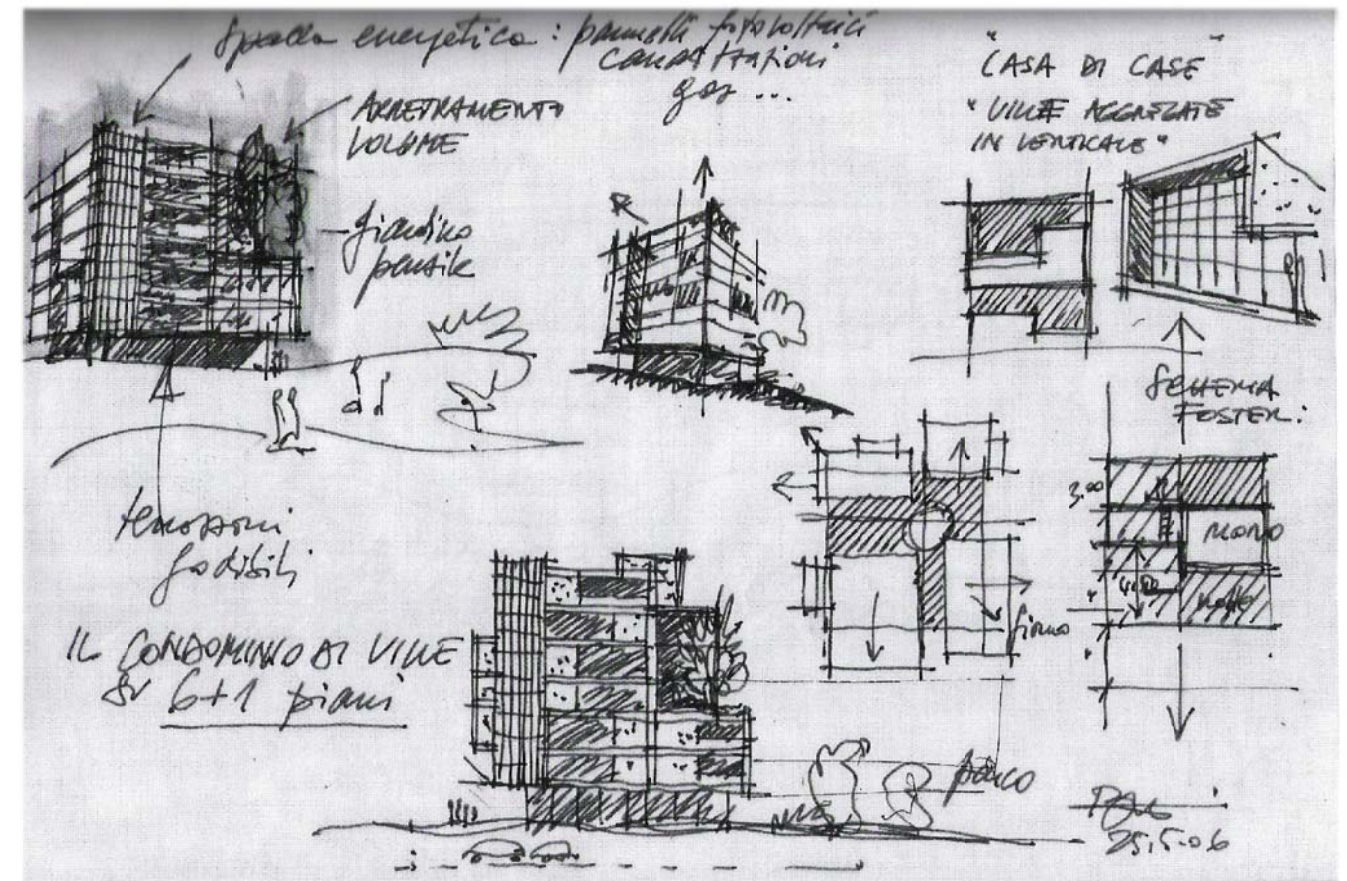 Spalla energetica : pannelli fotovoltaici
canalizzazioni
gas ...
ARRETRAMENTO
VOLUME
giardino
pensile
"CASA DI CASE"
"VILLE AGGREGATE
IN VERTICALE"
SCHEMA
FOSTER:
3.00
MONO
fiume
IL CONDOMINIO DI VILLE
DI 6+1 piani
parco
25.5.06